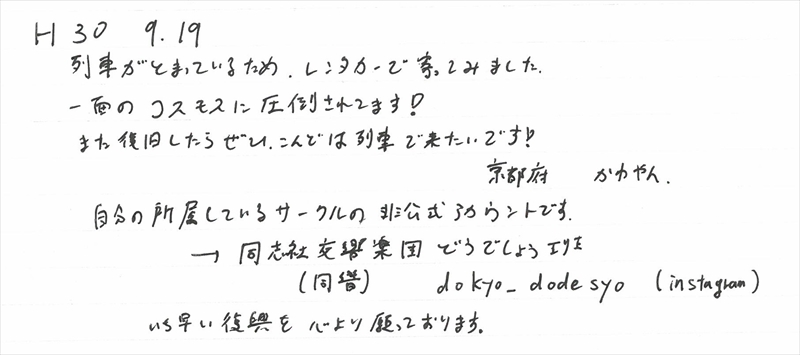 H30 9.19
列車がとまっているため、レンタカーで寄ってみました。
一面のコスモスに圧倒されてます!
また復旧したらぜひ、こんどは列車で来たいです!
京都府 かわやん。
自分の所属しているサークルの非公式アカウントです。
→ 同志社交響楽団 どうでしょう
(同響) dokyo_dodesyo (instagram)
いち早い復興を心より願っております。